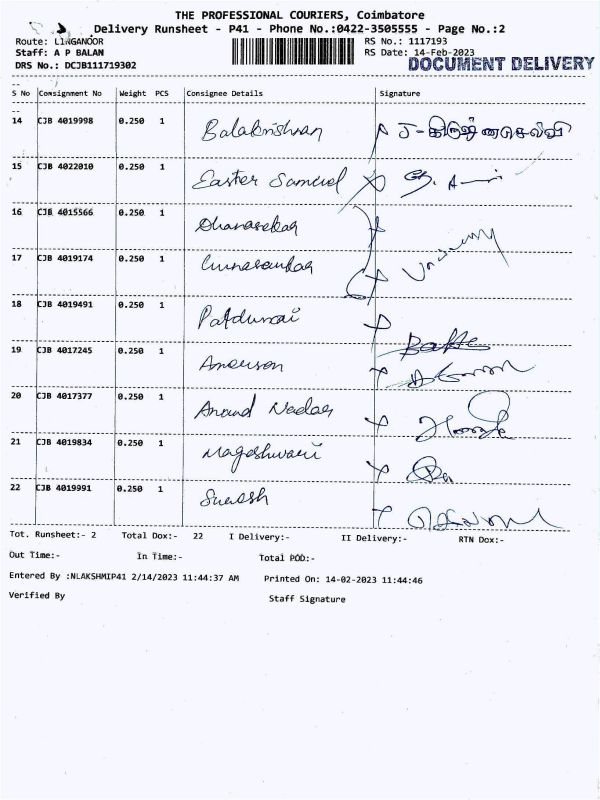 THE PROFESSIONAL COURIERS, Coimbatore
Delivery Runsheet - P41 - Phone No.:0422-3505555 - Page No.:2
Route: LINGANOOR RS No.: 1117193
Staff: A P BALAN RS Date: 14-Feb-2023
DRS No.: DCJB111719302 DOCUMENT DELIVERY
S No Consignment No Weight PCS Consignee Details Signature
14 CJB 4019998 0.250 1 Balakrishnan
15 CJB 4022010 0.250 1 Easter Samuel
16 CJB 4015566 0.250 1 Dhanasekar
17 CJB 4019174 0.250 1
18 CJB 4019491 0.250 1
19 CJB 4017245 0.250 1
20 CJB 4017377 0.250 1 Anand Nadar
21 CJB 4019834 0.250 1 Mageshwari
22 CJB 4019991 0.250 1 Suresh
Tot. Runsheet:- 2 Total Dox:- 22 I Delivery:- II Delivery:- RTN Dox:-
Out Time:- In Time:- Total POD:-
Entered By :NLAKSHMIP41 2/14/2023 11:44:37 AM Printed On: 14-02-2023 11:44:46
Verified By Staff Signature